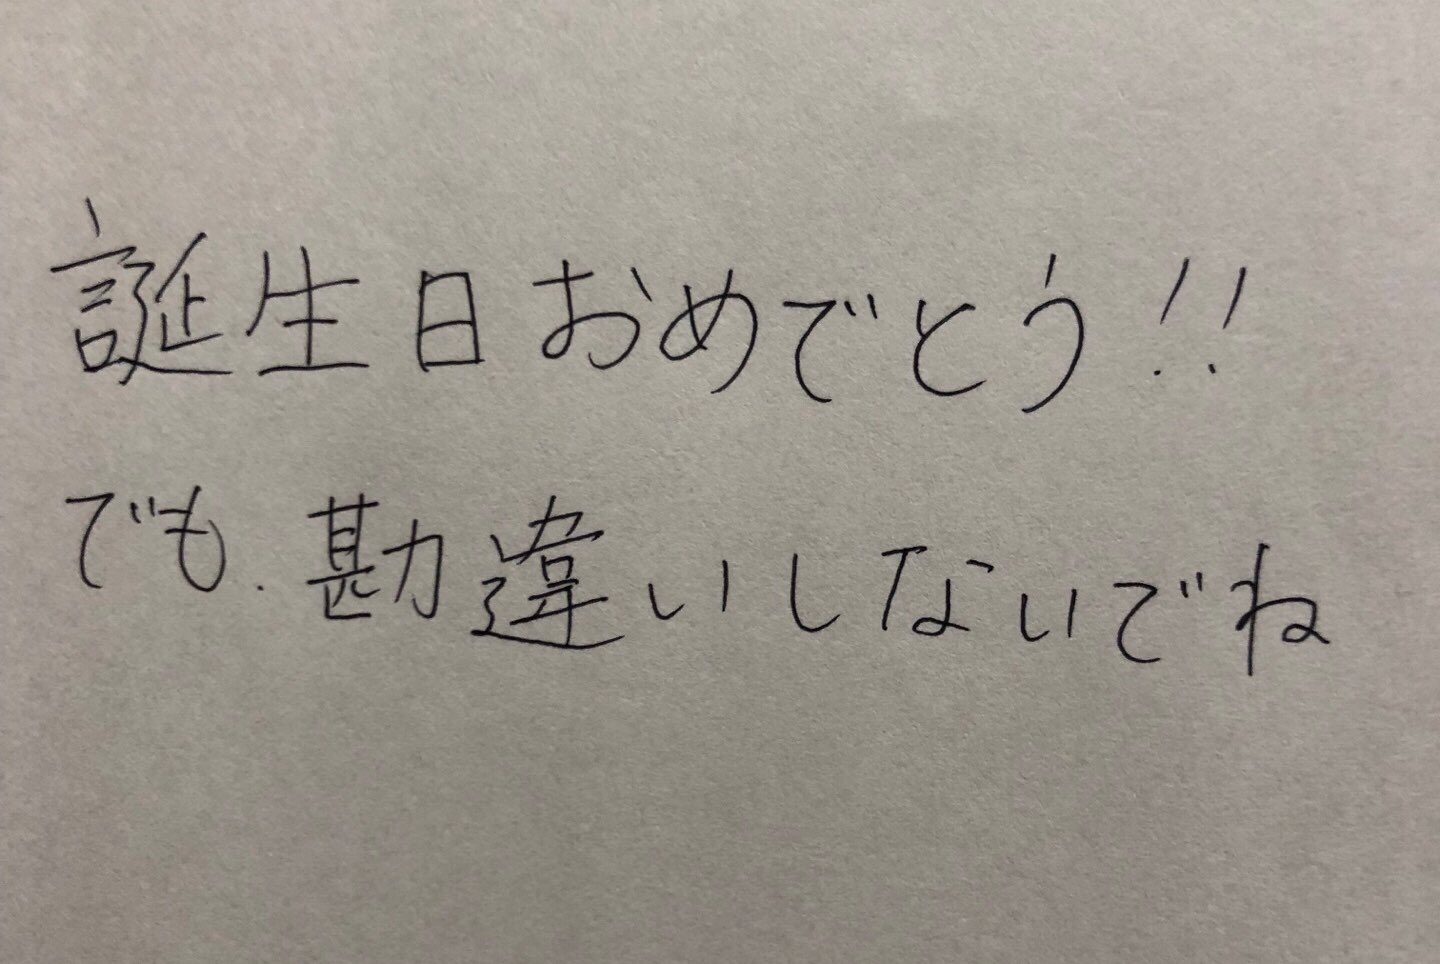 誕生日おめでとう!!
でも、勘違いしないでね